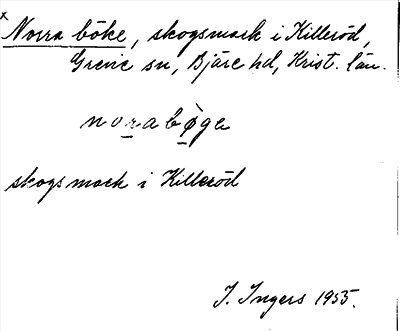 x Norra böke, skogsmark i Killeröd,
Grevie sn, Bjäre hd, Krist. län.
norabø̀ge
skogsmark i Killeröd
I. Ingers 1955.